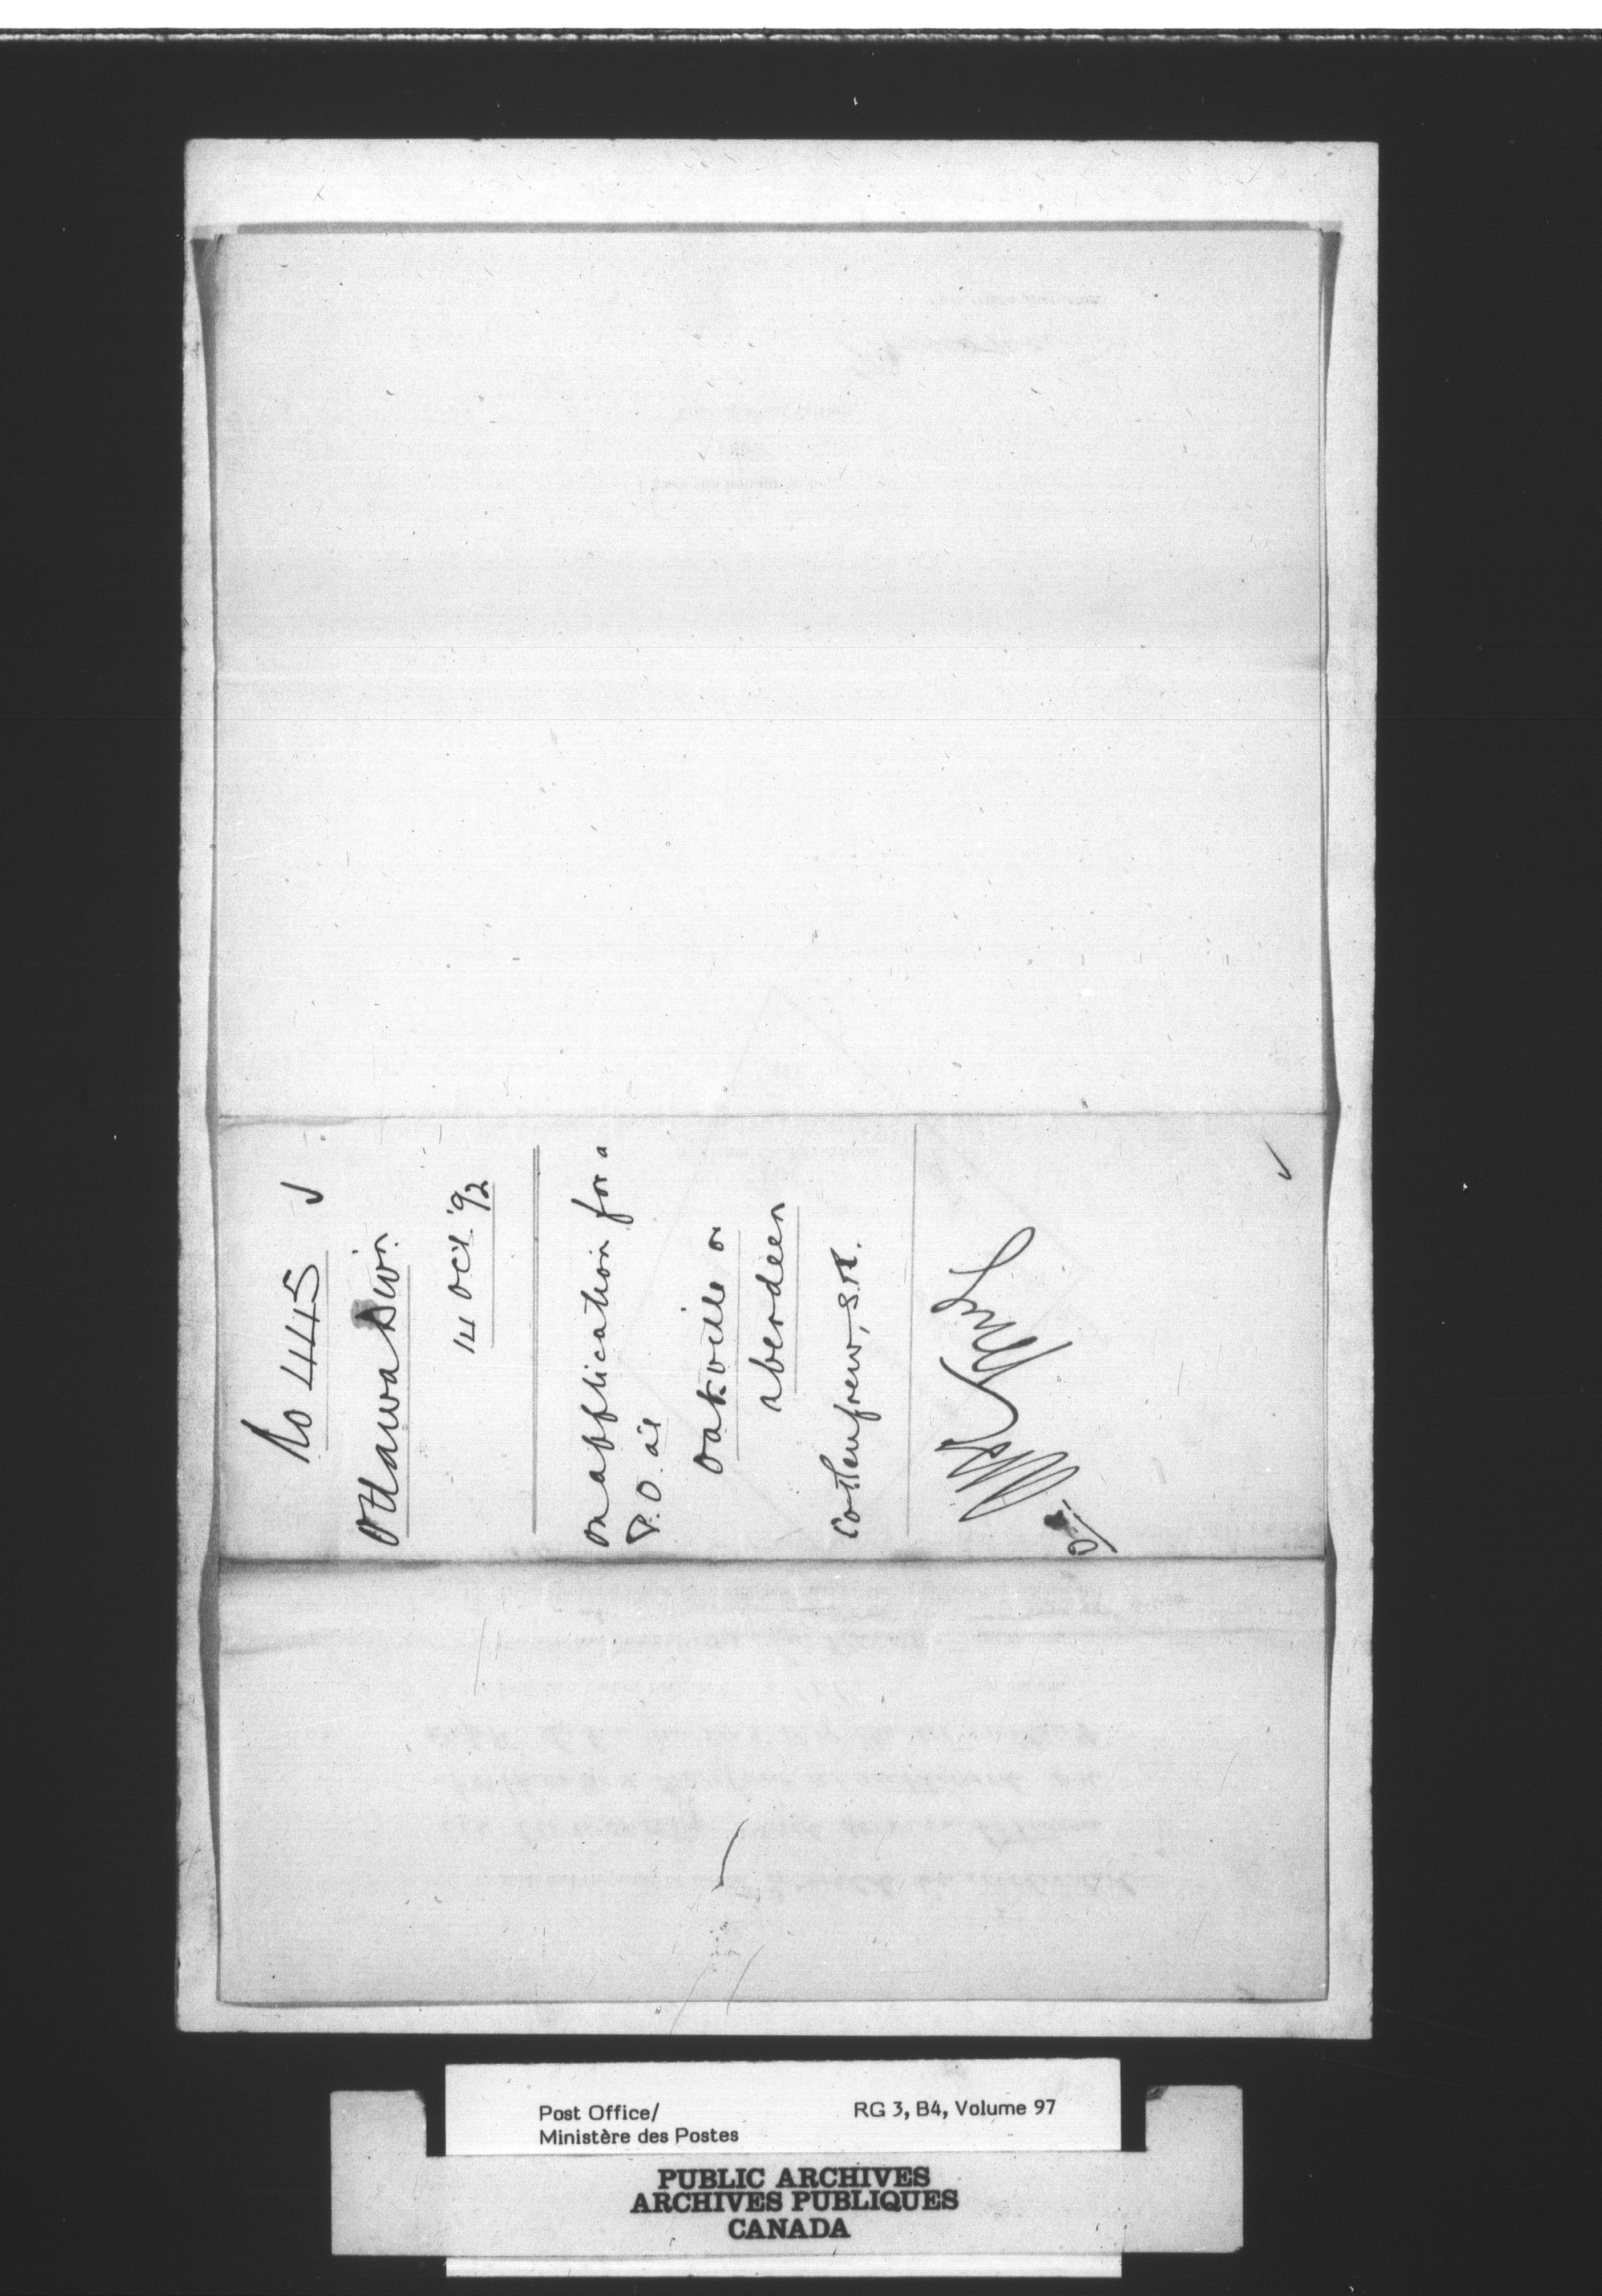 No 4445
Ottawa Divn.
14 Oct. '92
On application for a
P.O. at
Oakville or
Aberdeen
Co. Renfrew, S.R.
Post Office/
Ministère des Postes
RG 3, B4, Volume 97
PUBLIC ARCHIVES
ARCHIVES PUBLIQUES
CANADA